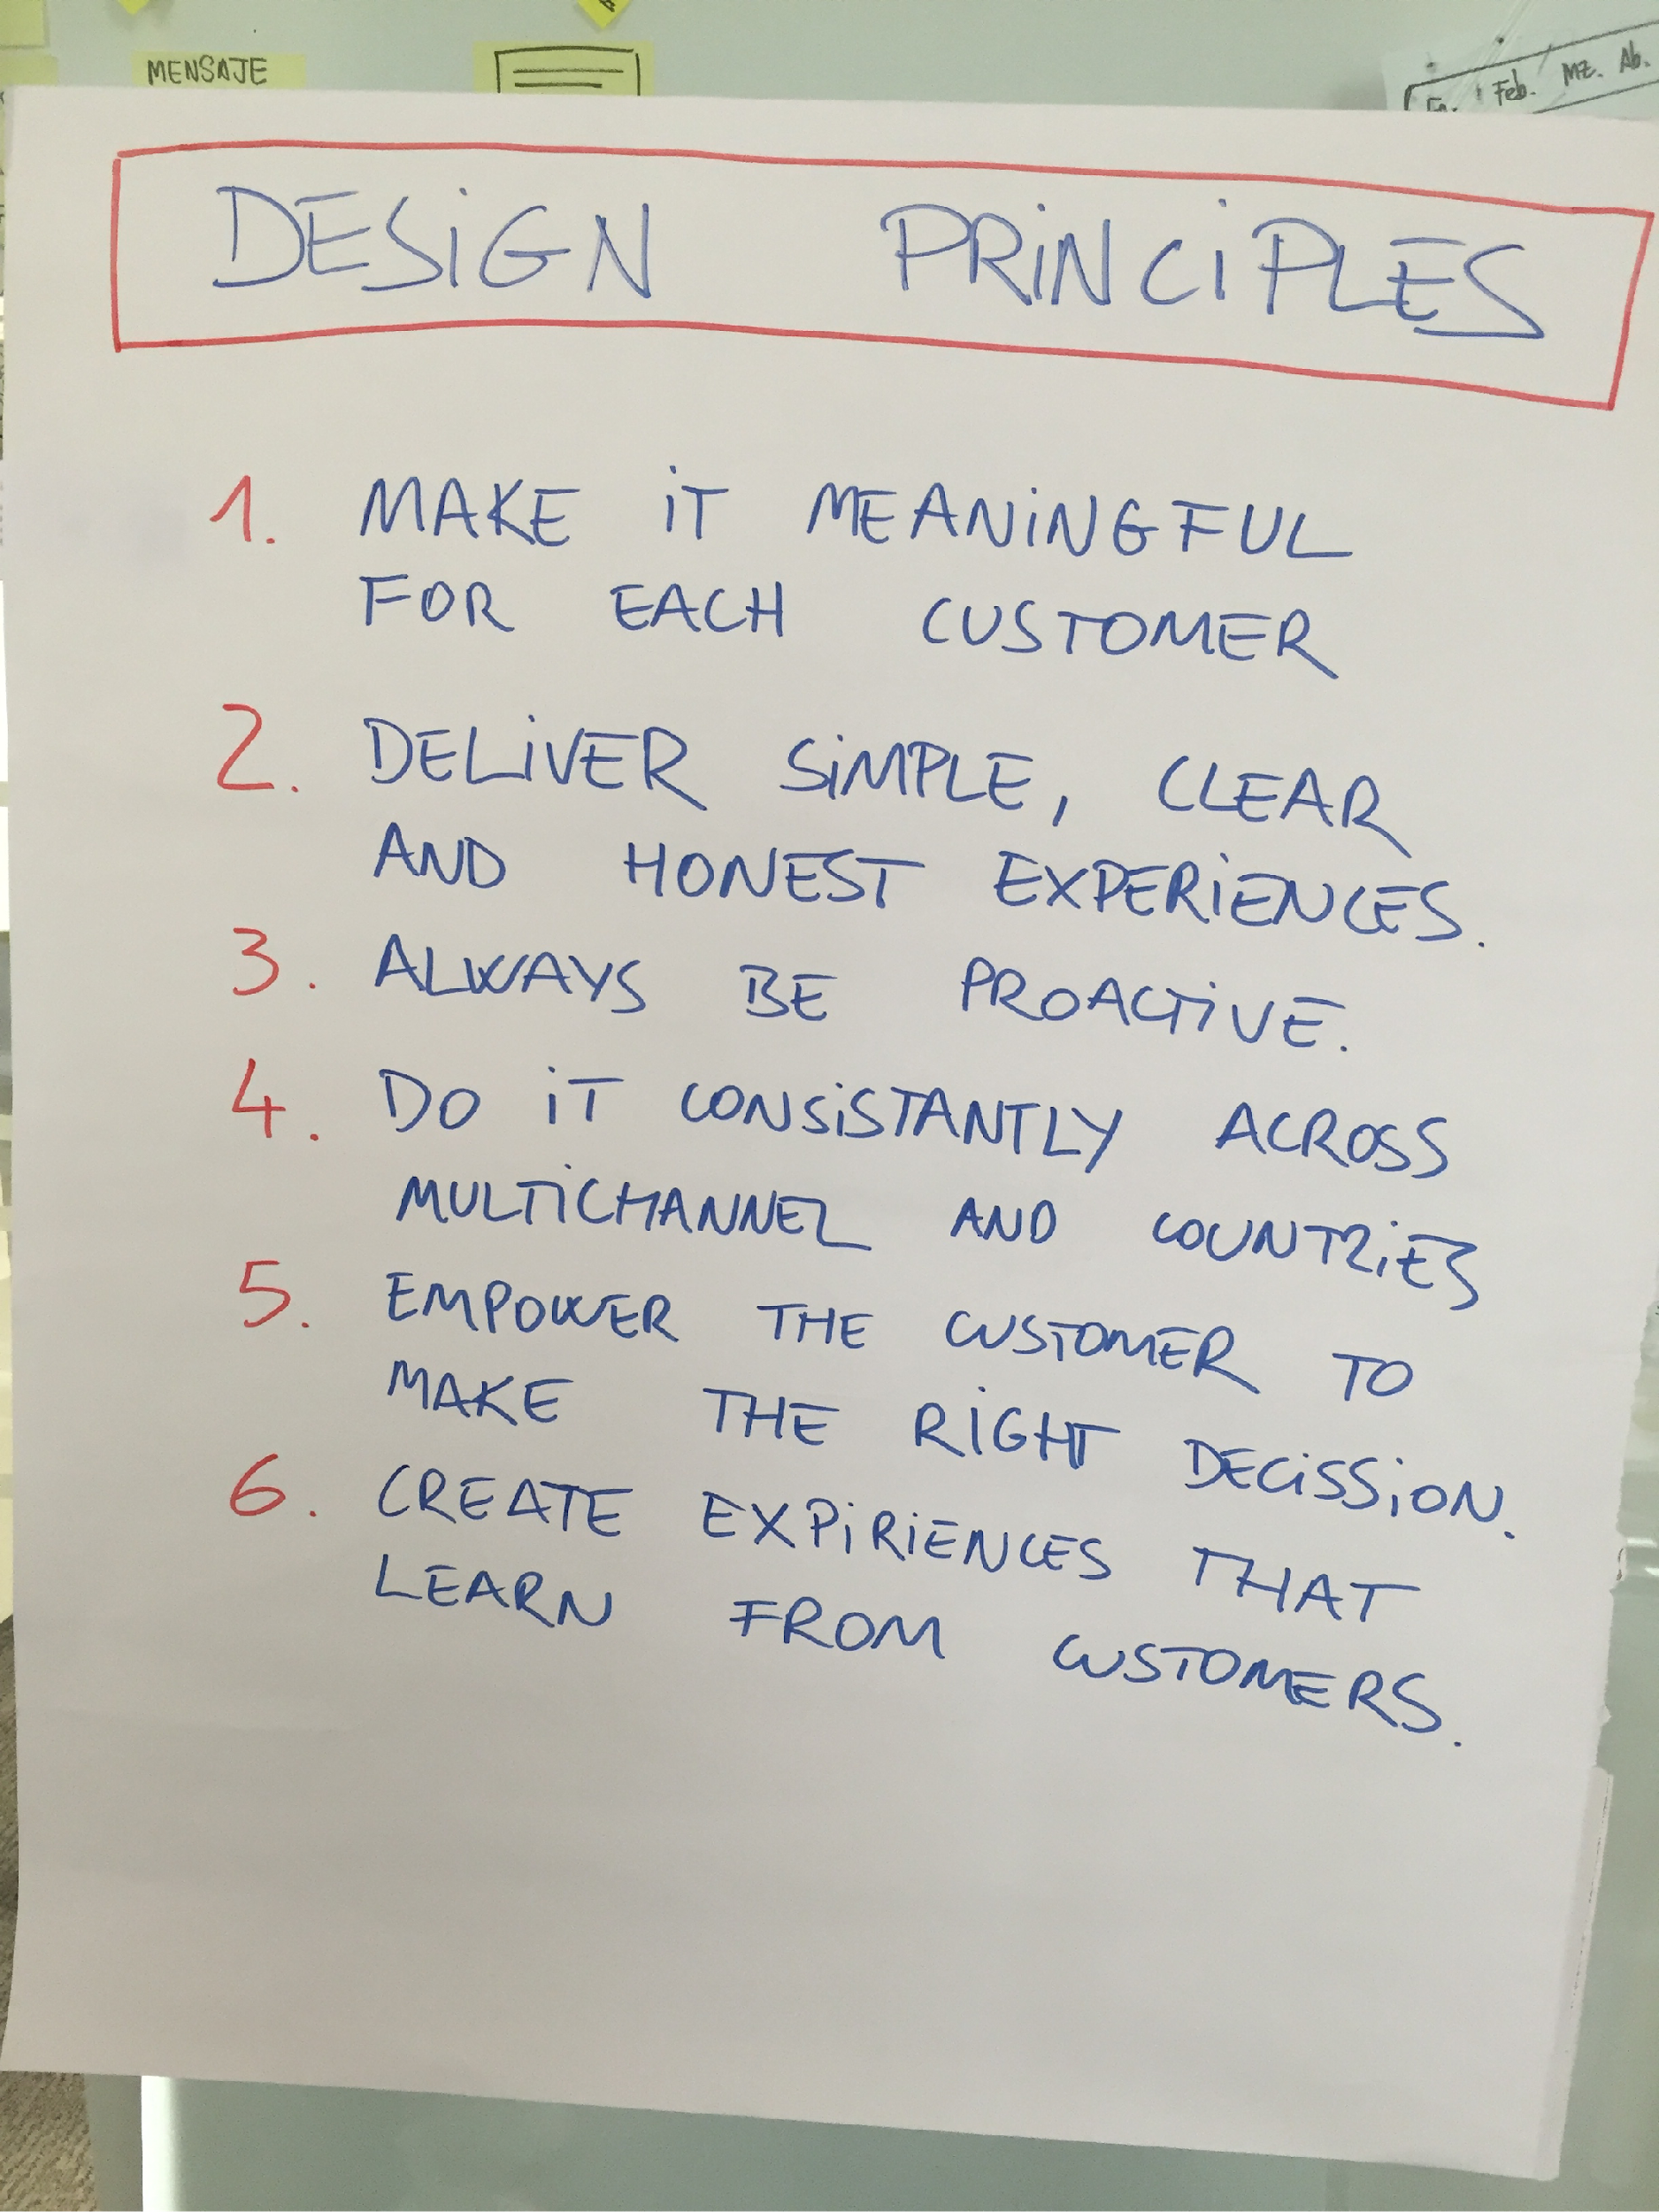 MENSAJE
En. Feb. Mz. Ab.
DESiGN PRiNCiPLES
1. MAKE iT MEANiNGFUL
FOR EACH CUSTOMER
2. DELiVER SiMPLE, CLEAR
AND HONEST EXPERiENCES.
3. ALWAYS BE PROACTiVE.
4. DO iT CONSiSTANTLY ACROSS
MULTiCHANNEL AND COUNTRiES
5. EMPOWER THE CUSTOMER TO
MAKE THE RiGHT DECiSSiON.
6. CREATE EXPiRiENCES THAT
LEARN FROM CUSTOMERS.